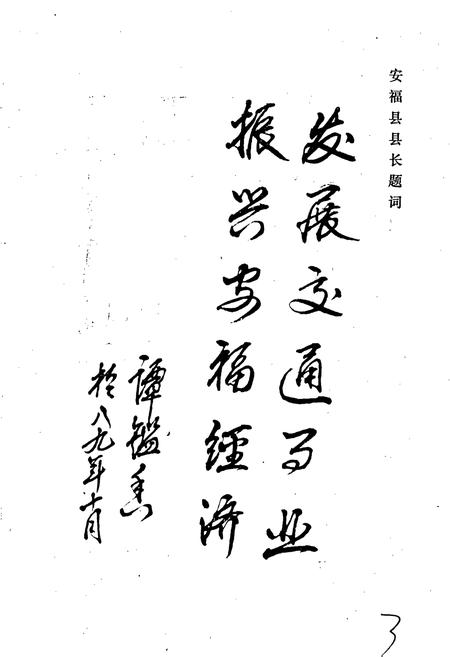 安福县县长题词
发展交通事业
振兴安福经济
谭鑑
於八九年十月
3